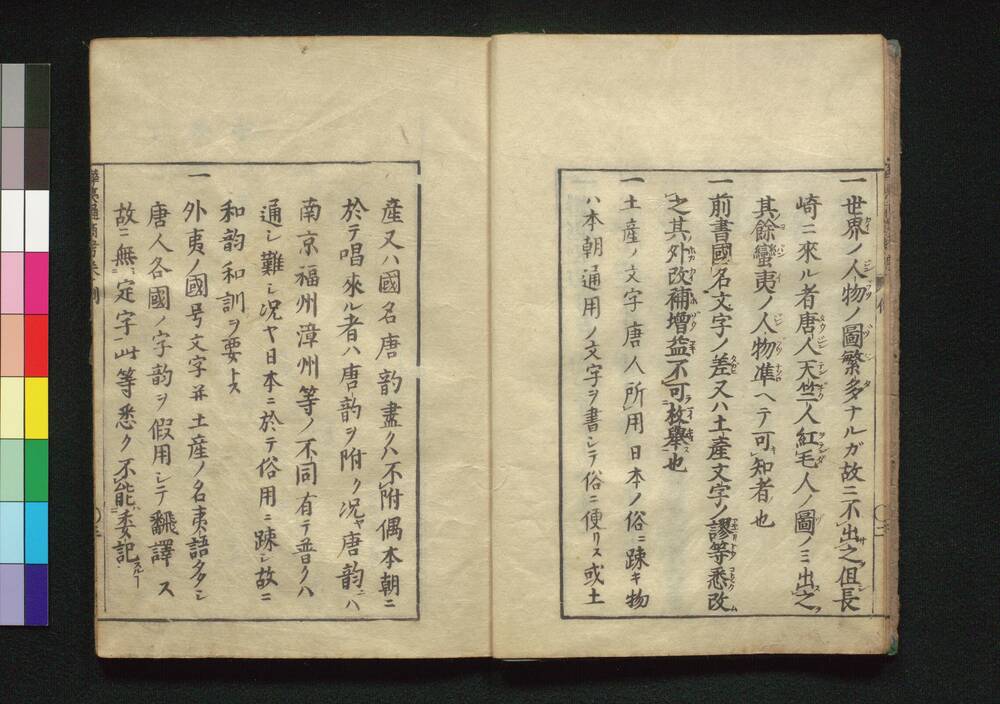 一世界ノ人物ノ圖繁多ナルガ故ニ不出之但長
崎ニ來ル者唐人天竺人紅毛人ノ圖ノミ出之
其餘蠻夷ノ人物準ヘテ可知者也
一前書國名文字ノ差又ハ土産文字ノ謬等悉改
之其外改補增益不可枚舉也
一土産ノ文字唐人所用日本ノ俗ニ踈キ物
ハ本朝通用ノ文字ヲ書シテ俗ニ便リス或土
産又ハ國名唐韵盡クハ不附偶本朝ニ
於テ唱來ル者ハ唐韵ヲ附ク况ヤ唐韵ニハ
南京福州漳州等ノ不同有テ普クハ
通シ難シ况ヤ日本ニ於テ俗用ニ踈シ故ニ
和韵和訓ヲ要トス
一外夷ノ國号文字并土産ノ名夷語多シ
唐人各國ノ字韵ヲ假用シテ飜譯ス
故ニ無定字此等悉ク不能委記